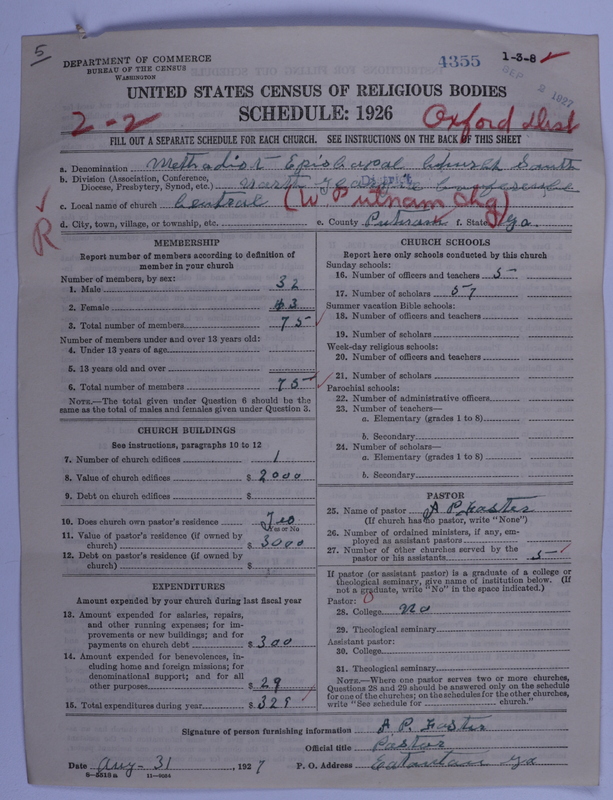 5
DEPARTMENT OF COMMERCE
BUREAU OF THE CENSUS
WASHINGTON
4355
1-3-8
SEP 2 1927
UNITED STATES CENSUS OF RELIGIOUS BODIES
SCHEDULE: 1926
2-2
Oxford Dist
FILL OUT A SEPARATE SCHEDULE FOR EACH CHURCH. SEE INSTRUCTIONS ON THE BACK OF THIS SHEET
a. Denomination Methodist Episcopal Church South
b. Division (Association, Conference, Diocese, Presbytery, Synod, etc.) North Georgia
District
c. Local name of church Central (W Putnam Chg)
d. City, town, village, or township, etc. e. County Putnam f. State Ga.
R
MEMBERSHIP
Report number of members according to definition of
member in your church
Number of members, by sex:
1. Male 32
2. Female 43
3. Total number of members 75
Number of members under and over 13 years old:
4. Under 13 years of age
5. 13 years old and over
6. Total number of members 75
NOTE.—The total given under Question 6 should be the
same as the total of males and females given under Question 3.
CHURCH BUILDINGS
See instructions, paragraphs 10 to 12
7. Number of church edifices 1
8. Value of church edifices $ 2000
9. Debt on church edifices $
10. Does church own pastor's residence Yes
Yes or No
11. Value of pastor's residence (if owned by
church) $ 3000
12. Debt on pastor's residence (if owned by
church) $
EXPENDITURES
Amount expended by your church during last fiscal year
13. Amount expended for salaries, repairs,
and other running expenses; for im-
provements or new buildings; and for
payments on church debt $ 300
14. Amount expended for benevolences, in-
cluding home and foreign missions; for
denominational support; and for all
other purposes $ 29
15. Total expenditures during year $ 329
CHURCH SCHOOLS
Report here only schools conducted by this church
Sunday schools:
16. Number of officers and teachers 5
17. Number of scholars 57
Summer vacation Bible schools:
18. Number of officers and teachers
19. Number of scholars
Week-day religious schools:
20. Number of officers and teachers
21. Number of scholars
Parochial schools:
22. Number of administrative officers
23. Number of teachers—
a. Elementary (grades 1 to 8)
b. Secondary
24. Number of scholars—
a. Elementary (grades 1 to 8)
b. Secondary
PASTOR
25. Name of pastor A P Foster
(If church has no pastor, write "None")
26. Number of ordained ministers, if any, em-
ployed as assistant pastors
27. Number of other churches served by the
pastor or his assistants 5
If pastor (or assistant pastor) is a graduate of a college or
theological seminary, give name of institution below. (If
not a graduate, write "No" in the space indicated.)
Pastor: 0
28. College No
29. Theological seminary
Assistant pastor:
30. College
31. Theological seminary
NOTE.—Where one pastor serves two or more churches,
Questions 28 and 29 should be answered only on the schedule
for one of the churches; on the schedules for the other churches,
write "See schedule for church."
Signature of person furnishing information A P. Foster
Official title Pastor
Date Aug-31, 1927 P. O. Address Eatonton Ga
8-5518a 11-4034